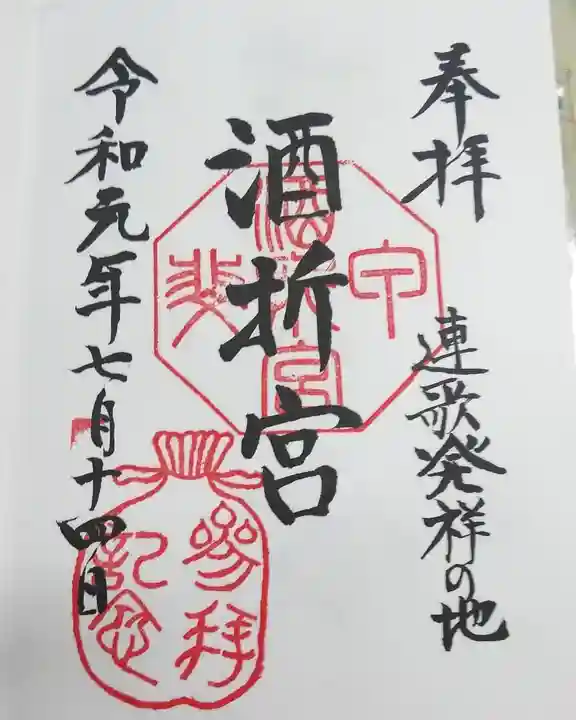 奉拝
連歌発祥の地
酒折宮
甲斐
酒折宮
令和元年七月十四日
参拝
記念